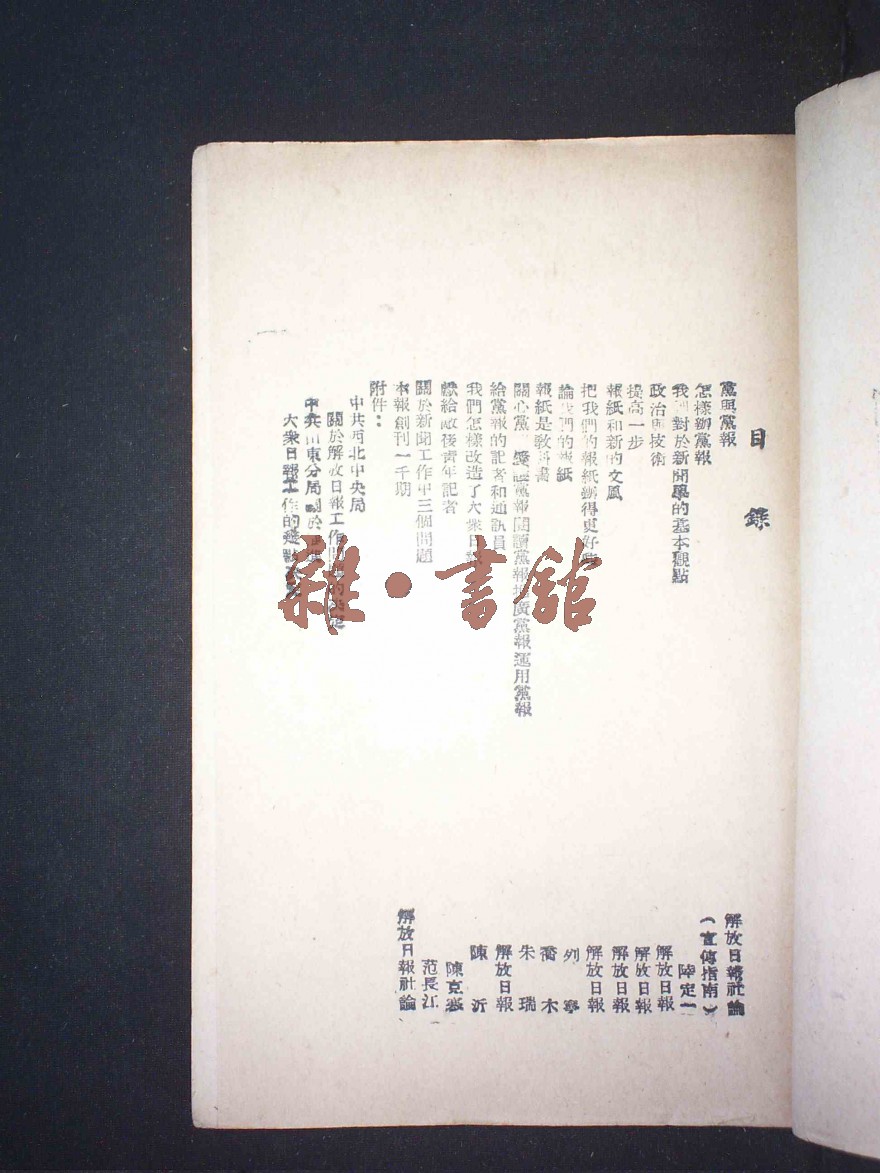 目錄
黨與黨報 解放日報社論
怎樣辦黨報 (宣傳指南)
我 對於新聞學的基本觀點 陸定一
政治與技術 解放日報
提高一步 解放日報
報紙和新的文風 解放日報
把我們的報紙辦得更好 解放日報
論我們的報紙 列寧
報紙是教科書 喬木
關心黨 讀黨報 廣黨報運用黨報 朱瑞
給黨報的記者和通訊員 解放日報
我們怎樣改造了大衆日報 陳沂
獻給敵後青年記者 陳克寒
關於新聞工作中三個問題 范長江
本報創刊一千期 解放日報社論
附件：
中共西北中央局
關於解放日報工作問題的決定
中共山東分局關於
大衆日報工作的
雜·書館